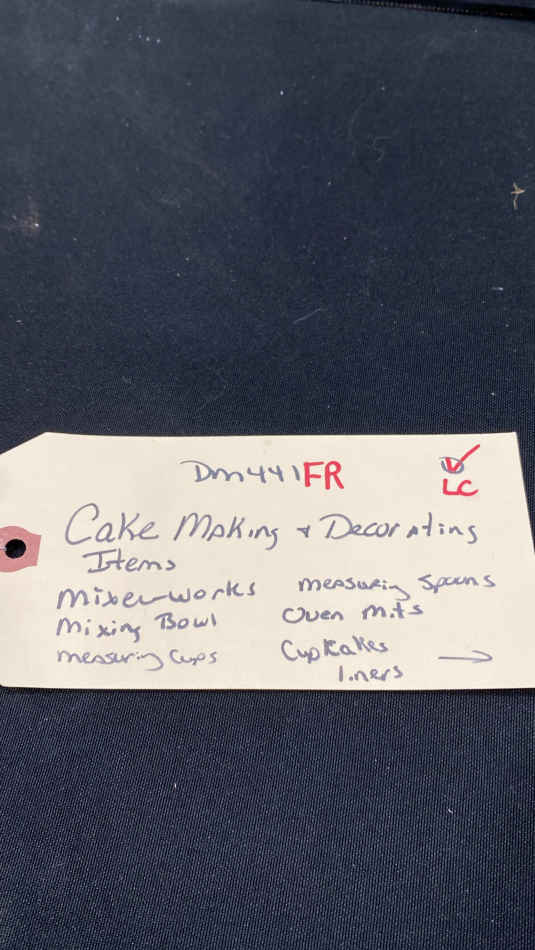 Dm441FR
LC
Cake Making + Decorating
Items
Mixer-works
Mixing Bowl
measuring Cups
measuring Spoons
Oven Mits
Cupkakes
liners